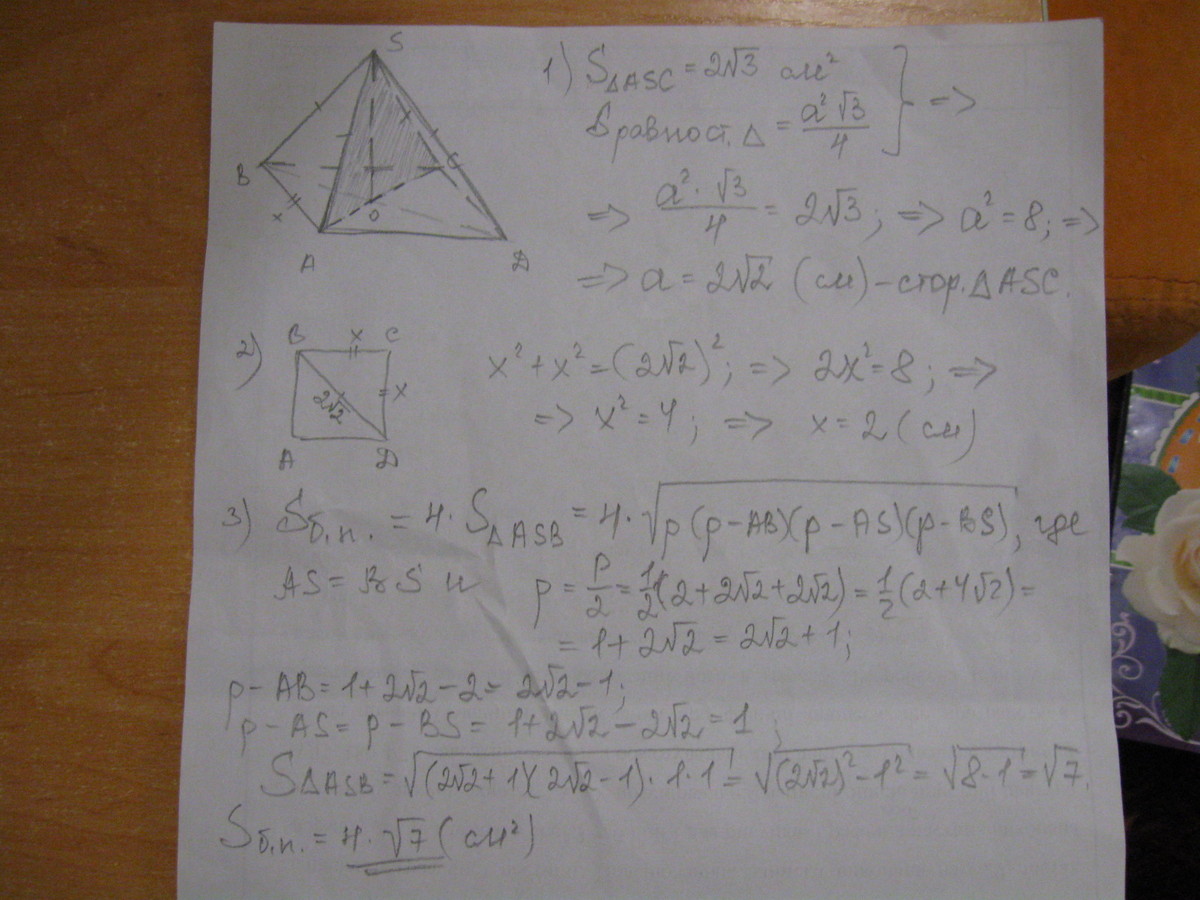 S
B
C
x
O
A
D
1) S△ASC = 2√3 см²
Sравност. △ = a²√3/4 } =>
=> a²·√3/4 = 2√3; => a² = 8; =>
=> a = 2√2 (см) – стор. △ASC.
2)
B x C
x
2√2
A D
x² + x² = (2√2)²; => 2x² = 8; =>
=> x² = 4; => x = 2 (см)
3) Sб.п. = 4· S△ASB = 4·√p(p-AB)(p-AS)(p-BS), где
AS = BS и p = P/2 = 1/2(2+2√2+2√2) = 1/2(2+4√2) =
= 1+2√2 = 2√2+1;
p-AB = 1+2√2-2 = 2√2-1;
p-AS = p-BS = 1+2√2-2√2 = 1;
S△ASB = √(2√2+1)(2√2-1)·1·1 = √(2√2)²-1² = √8-1 = √7.
Sб.п. = 4·√7 (см²)